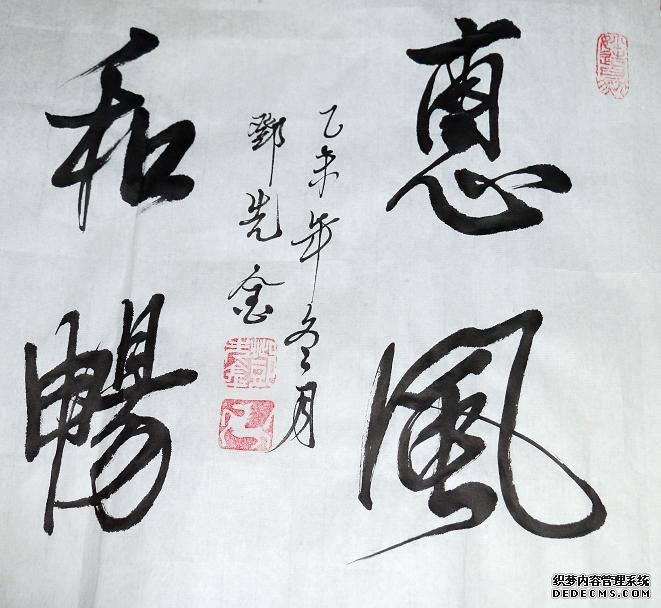 惠風
和暢
乙未年冬月
鄧先金
织梦内容管理系统
DEDECMS.COM